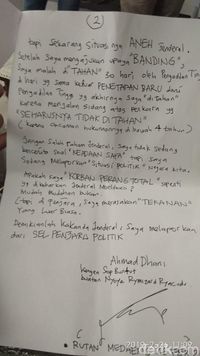 2
tapi, sekarang situasinya ANEH Jenderal.
Setelah Saya mengajukan upaya "BANDING",
Saya malah di "TAHAN" 30 hari oleh Pengadilan Tinggi
di hari yg sama keluar PENETAPAN BARU dari
Pengadilan Tinggi yg akhirnya Saya "di tahan"
karena menjalani sidang atas perkara yg
"SEHARUSNYA TIDAK DITAHAN"
(karena ancaman hukumannya di bawah 4 tahun).
Jangan Salah Paham Jenderal, Saya tidak sedang
bercerita soal "KEADAAN SAYA" tapi saya
Sedang Melaporkan "Situasi POLITIK" Negara kita.
Apakah Saya "KORBAN PERANG TOTAL" seperti
yg di kabarkan Jenderal Moeldoko?
Mudah Mudahan bukan.
(tapi di Penjara, Saya merasakan "TEKANAN"
Yang Luar Biasa.
Demikianlah Kakanda Jenderal, Saya melaporkan
dari SEL PENJARA POLITIK
Ahmad Dhani
RUTAN MEDAENG